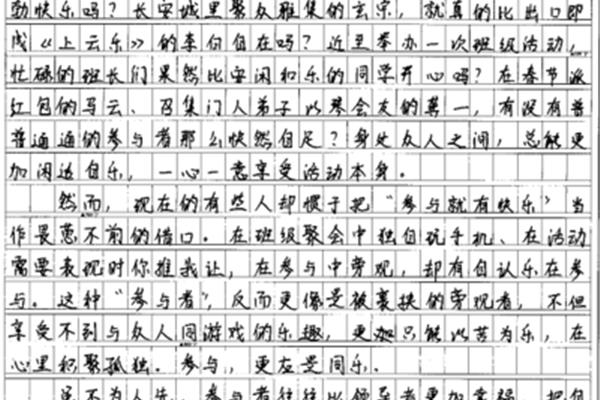 勃快乐吗？长安城里聚众雅集的玄宗，就真的比出口即
成《上云乐》的李白自在吗？近里举办一次班级活动，
忙碌的班长们果然比安闲和乐的同学开心吗？在春节派
红包的马云、召集门人弟子以琴会友的蔡一，有没有普
普通通的参与者那么快然自足？身处众人之间，总能更
加闲适自乐，一心一意享受活动本身。
然而，现在的有些人却惯于把“参与就有快乐”当
作畏葸不前的借口。在班级聚会中独自玩手机、在活动
需要表现时你推我让，在参与中旁观，却有自认乐在参
与。这种“参与者”，反而更像是被裹挟的旁观者，不但
享受不到与众人同游戏的乐趣，更加只能以苦为乐，在
心里积聚孤独。参与，更应是同乐。
虽不为人先，参与者往往比领导者更加